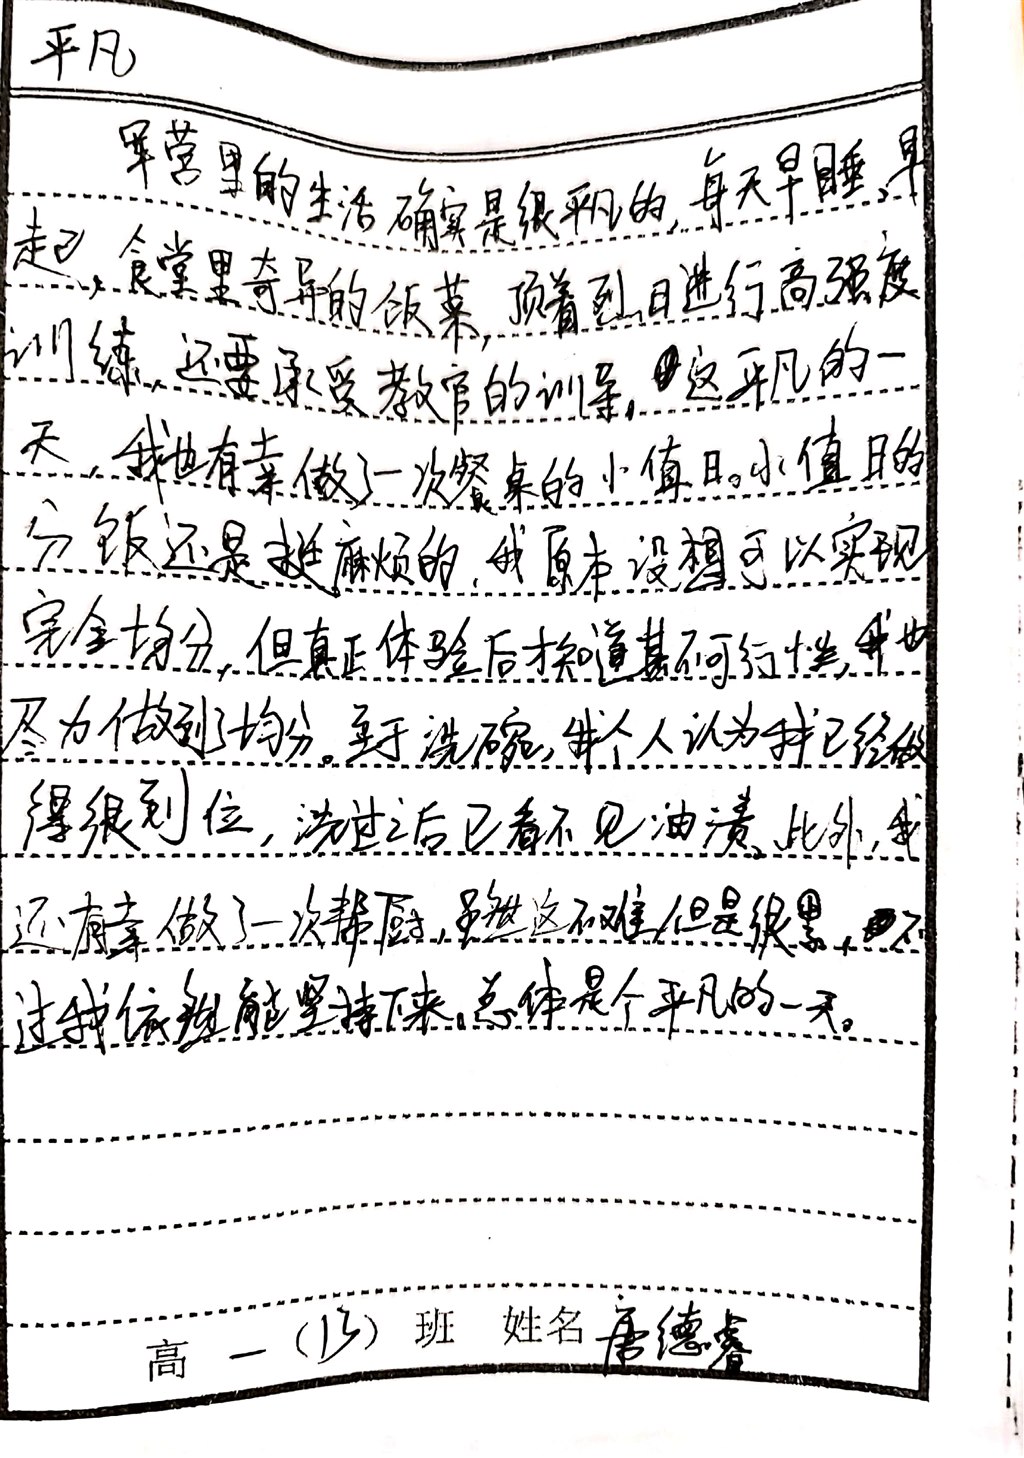 平凡
军营里的生活确实是很平凡的，每天早睡、早
起，食堂里奇异的饭菜，顶着烈日进行高强度
训练，还要承受教官的训导，这平凡的一
天，我也有幸做了一次餐桌的小值日。小值日的
分饭还是挺麻烦的，我原本设想可以实现
完全均分，但真正体验后才知道其不可行性，我也
尽力做到了均分。至于洗碗，我个人认为我已经做
得很到位，洗过之后已看不见油渍。此外，我
还有幸做了一次帮厨，虽然这不难，但是很累，不
过我依然能坚持下来。总体是个平凡的一天。
高一(13)班 姓名 唐德睿